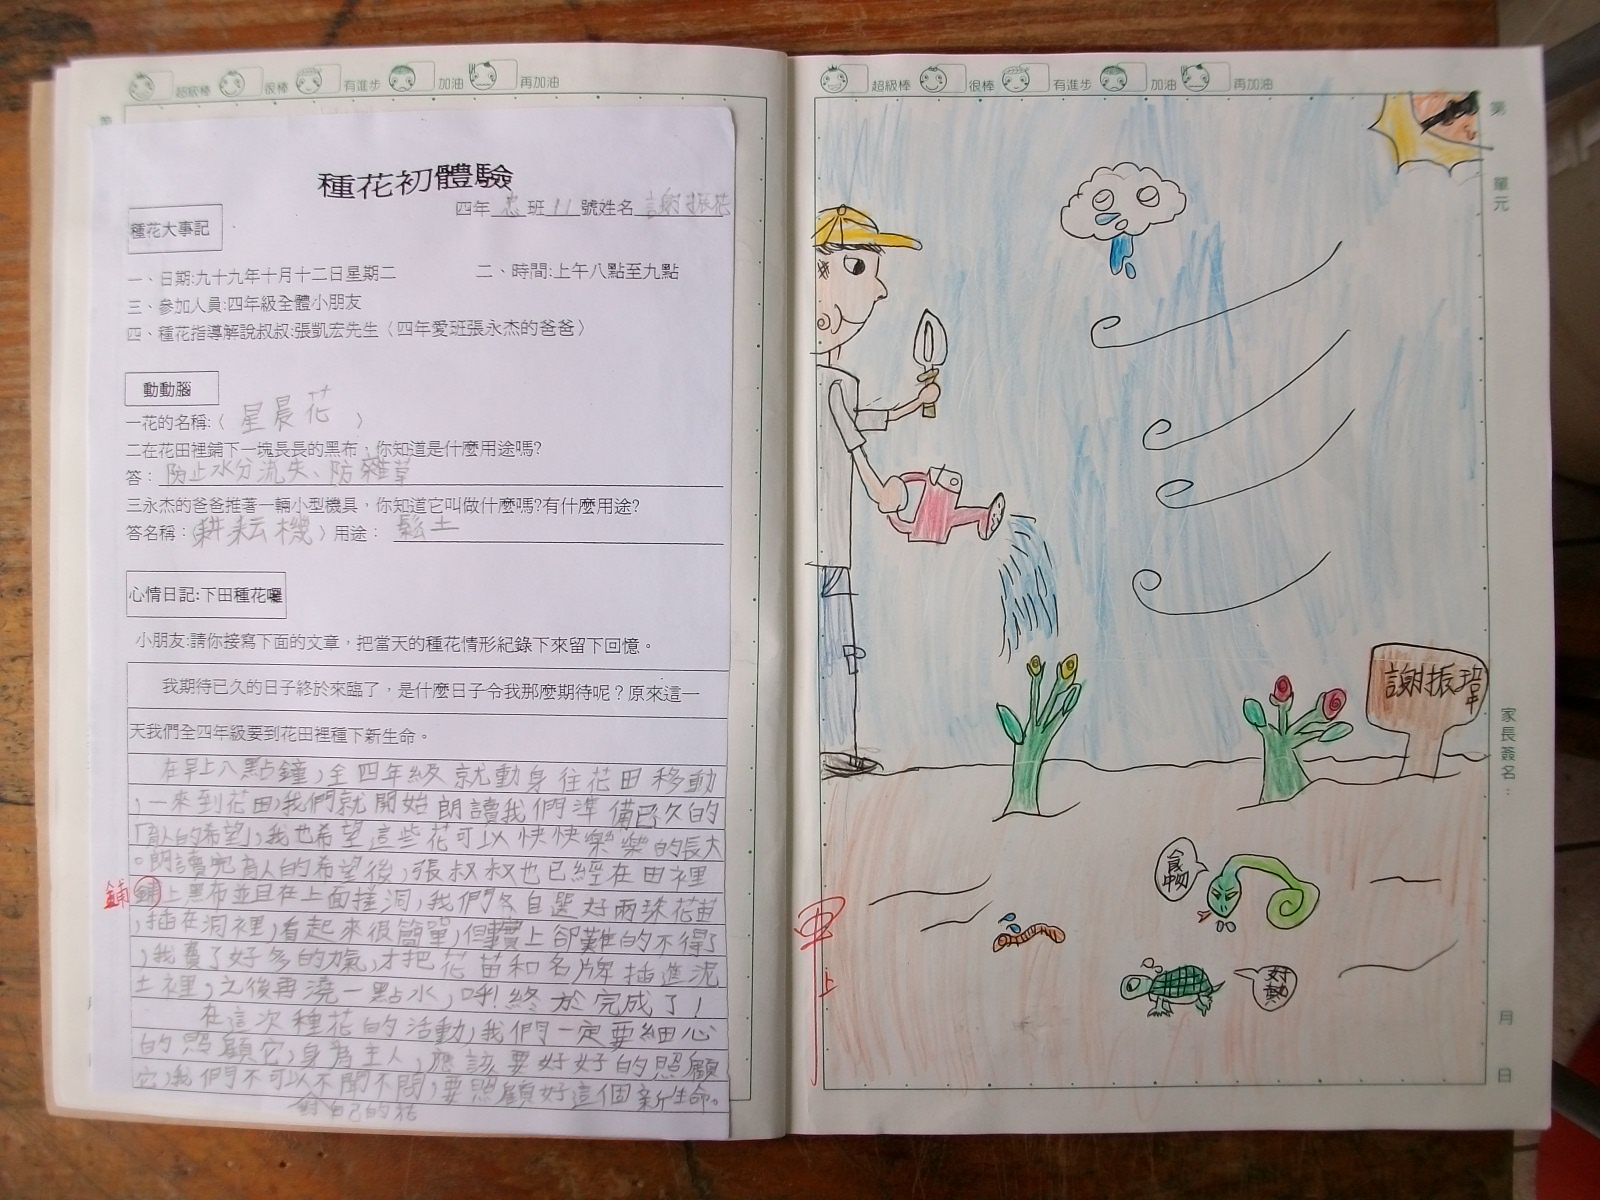 超級棒 很棒 有進步 加油 再加油
種花初體驗
四年 忠 班 11 號姓名 謝振
種花大事記
一、日期:九十九年十月十二日星期二 二、時間:上午八點至九點
三、參加人員:四年級全體小朋友
四、種花指導解說叔叔:張凱宏先生〈四年愛班張永杰的爸爸〉
動動腦
一花的名稱:〈 星晨花 〉
二在花田裡鋪下一塊長長的黑布，你知道是什麼用途嗎?
答： 防止水分流失、防雜草
三永杰的爸爸推著一輛小型機具，你知道它叫做什麼嗎?有什麼用途?
答名稱：〈耕耘機〉用途： 鬆土
心情日記:下田種花囉
小朋友:請你接寫下面的文章，把當天的種花情形紀錄下來留下回憶。
我期待已久的日子終於來臨了，是什麼日子令我那麼期待呢？原來這一
天我們全四年級要到花田裡種下新生命。
在早上八點鐘，全四年級就動身往花田移動
，一來到花田，我們就開始朗讀我們準備已久的
「人的希望」，我也希望這些花可以快快樂樂的長大
。朗讀完 人的希望後，張叔叔也已經在田裡
鋪
上黑布並且在上面搓洞，我們各自選好兩珠花苗
，插在洞裡，看起來很簡單，但實上卻難的不得了
，我費了好多的力氣，才把花苗和名牌插進泥
土裡，之後再澆一點水，呼!終於完成了!
在這次種花的活動，我們一定要細心
的照顧它，身為主人，應該要好好的照顧
它，我們不可以不聞不問，要照顧好這個新生命。
對自己的花
超級棒 很棒 有進步 加油 再加油
第 單元
謝振瑋
家長簽名：
食物
好熱
甲上
月 日